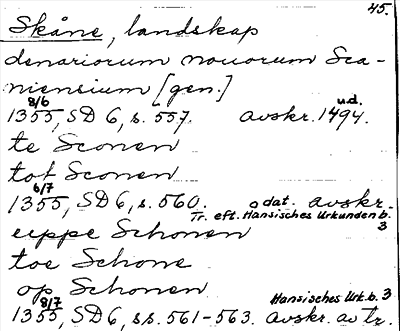 45.
Skåne, landskap
denariorum nouorum Sca-
niensium [gen.]
8/6 u.d.
1355, SD 6, s. 557. avskr. 1494.
te Sconen
tot Sconen
6/7
1355, SD 6, s. 560. odat. avskr.
Tr. eft. Hansisches Urkundenb. 3
uppe Schonen
toe Schone
op Schonen
8/7 Hansisches Urk.b. 3
1355, SD 6, ss. 561-563. avskr. av tr.